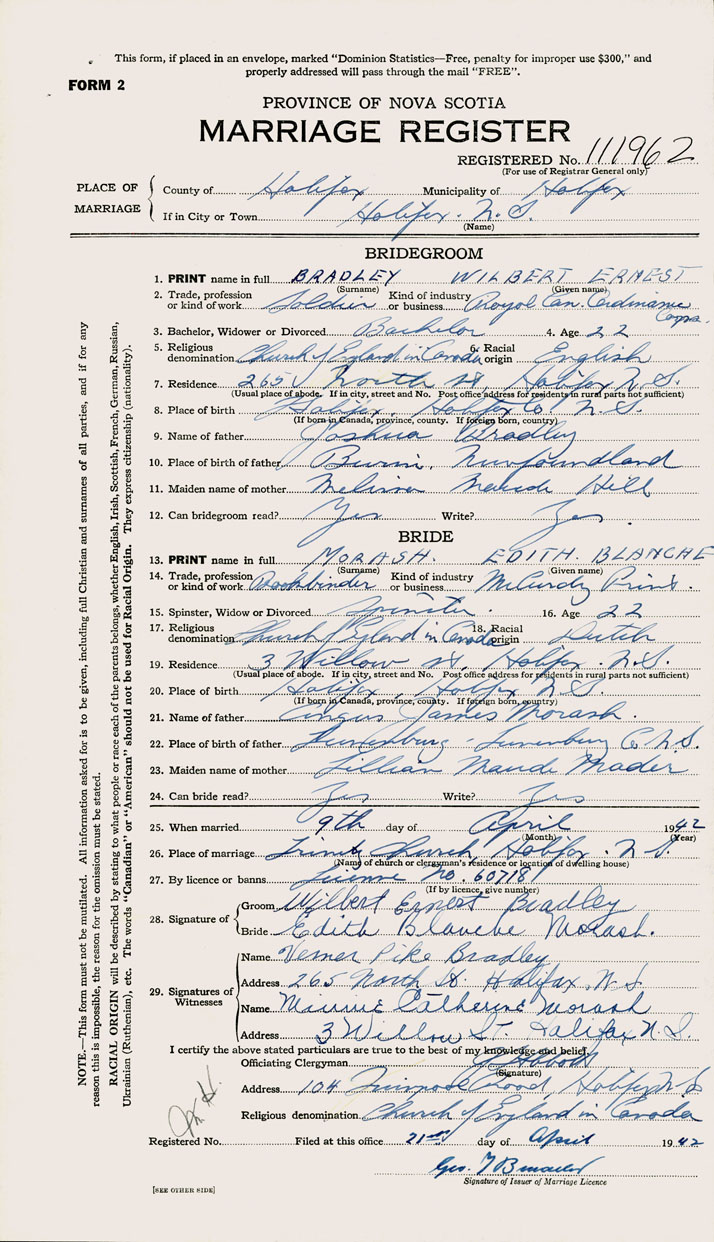 This form, if placed in an envelope, marked "Dominion Statistics—Free, penalty for improper use $300," and
properly addressed will pass through the mail "FREE".
FORM 2
PROVINCE OF NOVA SCOTIA
MARRIAGE REGISTER
REGISTERED No. 111962
(For use of Registrar General only)
PLACE OF MARRIAGE
County of Halifax Municipality of Halifax
If in City or Town Halifax. N.S.
(Name)
BRIDEGROOM
1. PRINT name in full BRADLEY WILBERT ERNEST
(Surname) (Given name)
2. Trade, profession or kind of work Soldier Kind of industry or business Royal Can. Ordinance Corps.
3. Bachelor, Widower or Divorced Bachelor 4. Age 22
5. Religious denomination Church of England in Canada 6. Racial origin English
7. Residence 265 North St, Halifax N.S.
(Usual place of abode. If in city, street and No. Post office address for residents in rural parts not sufficient)
8. Place of birth Halifax, Halifax Co N.S.
(If born in Canada, province, county. If foreign born, country)
9. Name of father Joshua Bradley
10. Place of birth of father Burin, Newfoundland
11. Maiden name of mother Melissa Maude Hill
12. Can bridegroom read? Yes Write? Yes.
BRIDE
13. PRINT name in full MORASH. EDITH. BLANCHE
(Surname) (Given name)
14. Trade, profession or kind of work Bookbinder Kind of industry or business McCurdy Print.
15. Spinster, Widow or Divorced Spinster. 16. Age 22
17. Religious denomination Church of England in Canada 18. Racial origin Dutch
19. Residence 3 Willow St, Halifax. N.S.
(Usual place of abode. If in city, street and No. Post office address for residents in rural parts not sufficient)
20. Place of birth Halifax, Halifax N.S.
(If born in Canada, province, county. If foreign born, country)
21. Name of father Angus James Morash.
22. Place of birth of father Lunenburg. Lunenburg Co N.S.
23. Maiden name of mother Lillian Maude Mader
24. Can bride read? Yes Write? Yes
25. When married 9th day of April 1942
(Month) (Year)
26. Place of marriage Trinity Church, Halifax. N.S.
(Name of church or clergyman's residence or location of dwelling house)
27. By licence or banns License No. 60718
(If by licence, give number)
28. Signature of
Groom Wilbert Ernest Bradley
Bride Edith Blanche Morash.
29. Signatures of Witnesses
Name Verner Pike Bradley
Address 265 North St. Halifax, N.S.
Name Catherine Morash
Address 3 Willow St. Halifax N.S.
I certify the above stated particulars are true to the best of my knowledge and belief.
Officiating Clergyman
(Signature)
Address 104 Road, Halifax N.S
Religious denomination Church of England in Canada
Registered No. Filed at this office 21st day of April 1942
Geo.
Signature of Issuer of Marriage Licence
[SEE OTHER SIDE]
NOTE.—This form must not be mutilated. All information asked for is to be given, including full Christian and surnames of all parties, and if for any
reason this is impossible, the reason for the omission must be stated.
RACIAL ORIGIN will be described by stating to what people or race each of the parents belongs, whether English, Irish, Scottish, French, German, Russian,
Ukrainian (Ruthenian), etc. The words "Canadian" or "American" should not be used for Racial Origin. They express citizenship (nationality).